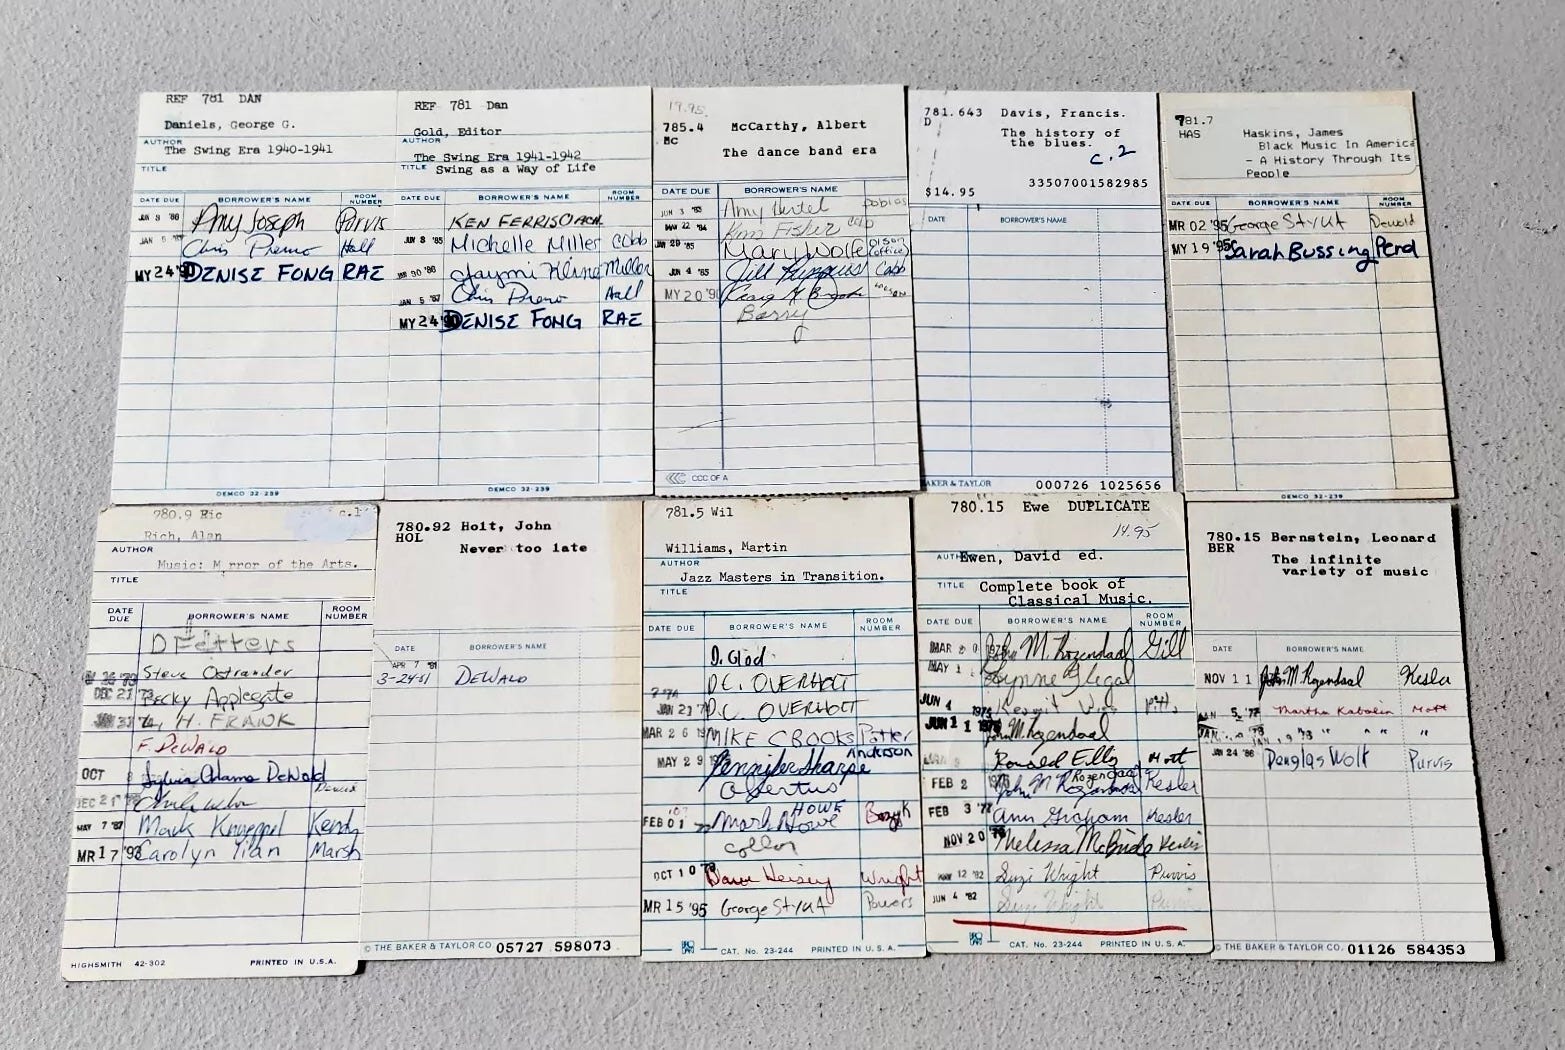 REF 781 DAN
Daniels, George G.
AUTHOR
The Swing Era 1940-1941
TITLE
DATE DUE BORROWER'S NAME ROOM NUMBER
JUN 3 '86 Amy Joseph Purvis
JAN 5 '87 Chris Premo Hall
MY 24 '90 DENISE FONG RAE
DEMCO 32-239
REF 781 Dan
Gold, Editor
AUTHOR
The Swing Era 1941-1942
TITLE Swing as a Way of Life
DATE DUE BORROWER'S NAME ROOM NUMBER
KEN FERRIS
JUN 3 '85 Michelle Miller Cobb
'86 Jaymi Kline Miller
JAN 5 '87 Chris Premo Hall
MY 24 '90 DENISE FONG RAE
DEMCO 32-239
19.95
785.4 McCarthy, Albert
Mc
The dance band era
DATE DUE BORROWER'S NAME ROOM NUMBER
JUN 3 '83 Amy Hertel
MAR 22 '84 Kim Fisher
JAN 29 '85 Mary Wolfe Olson (office)
JUN 4 '85 Jill Cobb
MY 20 '90 Craig A
Barry
CCC OF A
781.643 Davis, Francis.
D
The history of
the blues.
c.2
33507001582985
$14.95
DATE BORROWER'S NAME
BAKER & TAYLOR 000726 1025656
781.7
HAS Haskins, James
Black Music In America
- A History Through Its
People
DATE DUE BORROWER'S NAME ROOM NUMBER
MR 02 '95 George Styut Dewald
MY 19 '95 Sarah Bussing Perd
DEMCO 32-239
780.9 Ric c.1
Rich, Alan
AUTHOR
Music: Mirror of the Arts.
TITLE
DATE DUE BORROWER'S NAME ROOM NUMBER
D Fetters
Steve Ostrander
DEC 21 '73 Becky Applegate
JAN 31 '74 H. FRANK
F. DeWALD
OCT Sylvia Adams DeWald
DEC 21
MAY 7 '87 Mark Knueppel Kendy
MR 17 '93 Carolyn Tian Marsh
HIGHSMITH 42-302 PRINTED IN U.S.A.
780.92 Holt, John
HOL
Never too late
DATE BORROWER'S NAME
APR 7 '81
3-24-81 DEWALD
© THE BAKER & TAYLOR CO. 05727 598073
781.5 Wil
Williams, Martin
AUTHOR
Jazz Masters in Transition.
TITLE
DATE DUE BORROWER'S NAME ROOM NUMBER
D. Glod
D.C. OVERHOLT
JAN 23 D.C. OVERHOLT
MAR 26 MIKE CROOKS Potter
MAY 29 Jennifer Sharpe Anderson
HOWE
FEB 01 Mark Howe
OCT 10 Dave Heisey Wright
MR 15 '95 George Styut Powers
CAT. No. 23-244 PRINTED IN U.S.A.
780.15 Ewe DUPLICATE
14.95
AUTHOR Ewen, David ed.
TITLE Complete book of
Classical Music.
DATE DUE BORROWER'S NAME ROOM NUMBER
MAR John M. Rozendaal Gill
MAY 1 Lynne Glegal
JUN 4 Kermit Pitts
JUN 11 John M. Rozendaal
Ronald Mott
Rozendaal
FEB 2 John M Rozendaal Kesler
FEB 3 '77 Ann Graham Kesler
NOV 20 Melissa McBride Kesler
MAY 12 '82 Suzi Wright Purvis
JUN 4 '82 Suzi Wright Purvis
CAT. No. 23-244 PRINTED IN U.S.A.
780.15 Bernstein, Leonard
BER
The infinite
variety of music
DATE BORROWER'S NAME
NOV 11 John M. Rozendaal Kesler
JAN 5 Martha Kabalin Mott
JAN " " " "
JAN 24 '86 Douglas Wolf Purvis
© THE BAKER & TAYLOR CO. 01126 584353